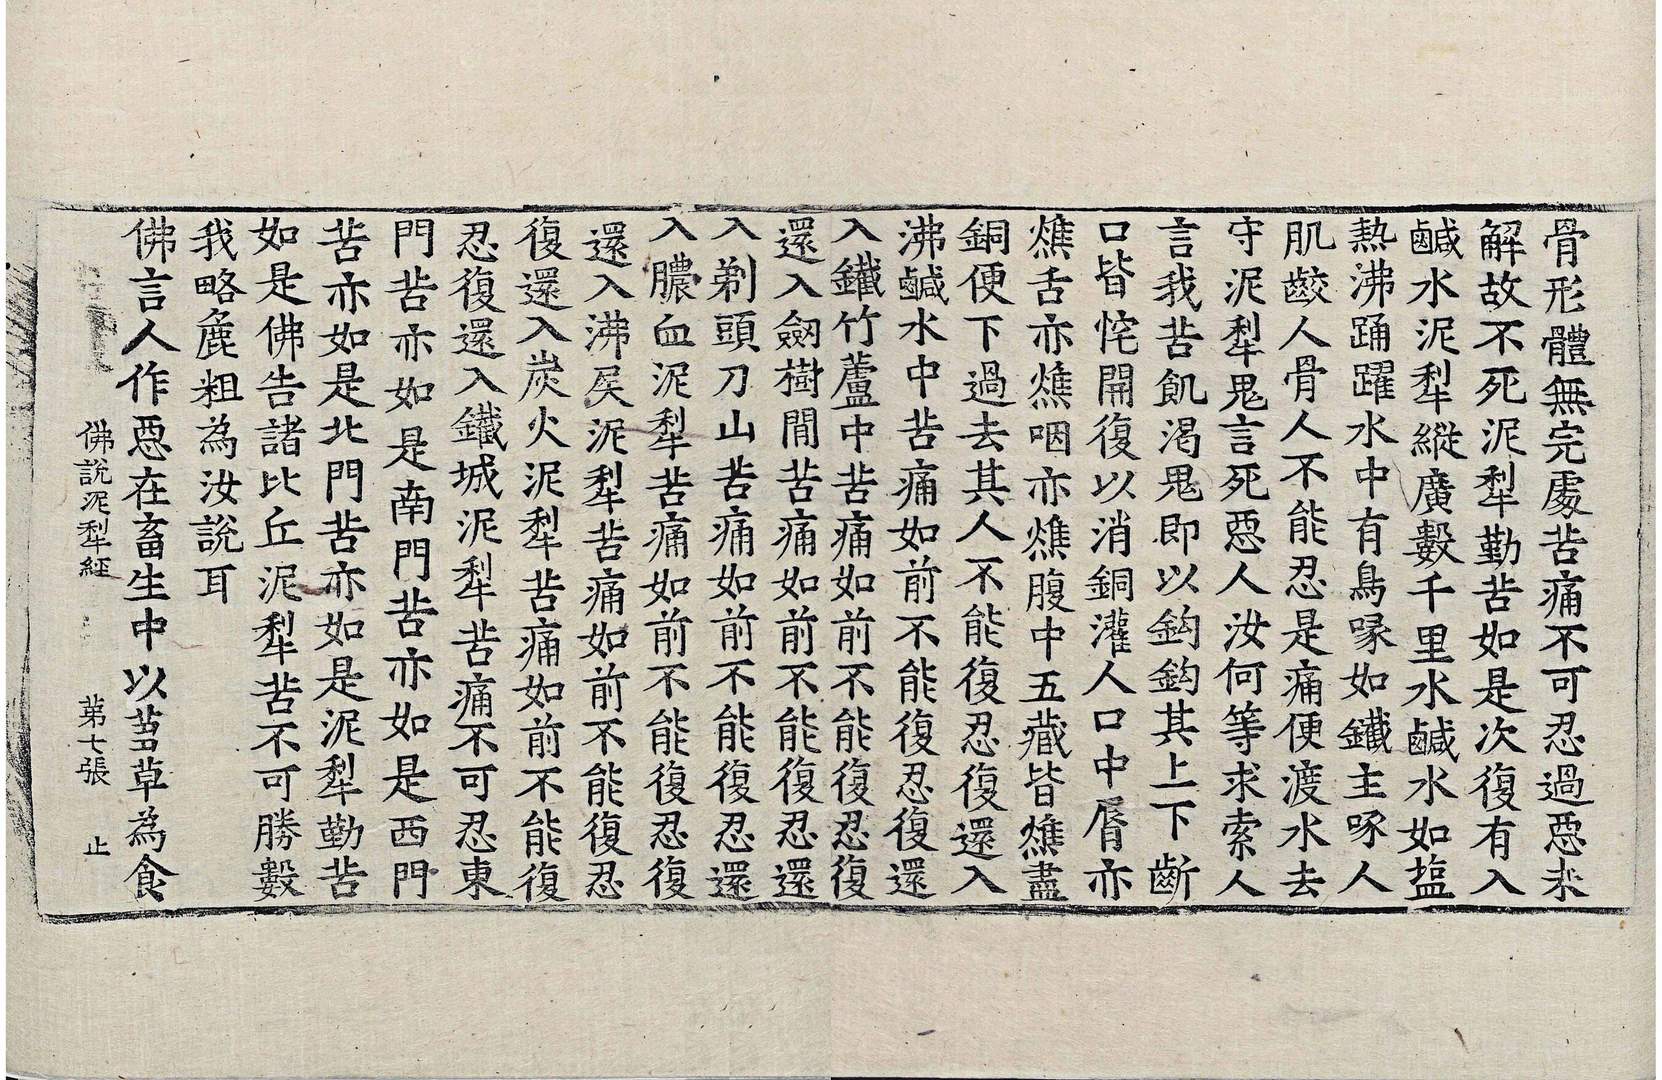 骨形體無完處苦痛不可忍過惡未
解故不死泥犁勤苦如是次復有入
鹹水泥犁縱廣數千里水鹹水如塩
熱沸踊躍水中有鳥啄如鐵主啄人
肌齩人骨人不能忍是痛便渡水去
守泥犁鬼言死惡人汝何等求索人
言我苦飢渴鬼即以鈎鈎其上下齗
口皆㤞開復以消銅灌人口中脣亦
燋舌亦燋咽亦燋腹中五藏皆燋盡
銅便下過去其人不能復忍復還入
沸鹹水中苦痛如前不能復忍復還
入鐵竹蘆中苦痛如前不能復忍復
還入劒樹閒苦痛如前不能復忍還
入剃頭刀山苦痛如前不能復忍還
入膿血泥犁苦痛如前不能復忍復
還入沸屎泥犁苦痛如前不能復忍
復還入炭火泥犁苦痛如前不能復
忍復還入鐵城泥犁苦痛不可忍東
門苦亦如是南門苦亦如是西門
苦亦如是北門苦亦如是泥犁勤苦
如是佛告諸比丘泥犁苦不可勝數
我略麁粗為汝說耳
佛言人作惡在畜生中以芻草為食
佛說泥犁經 第七張 止